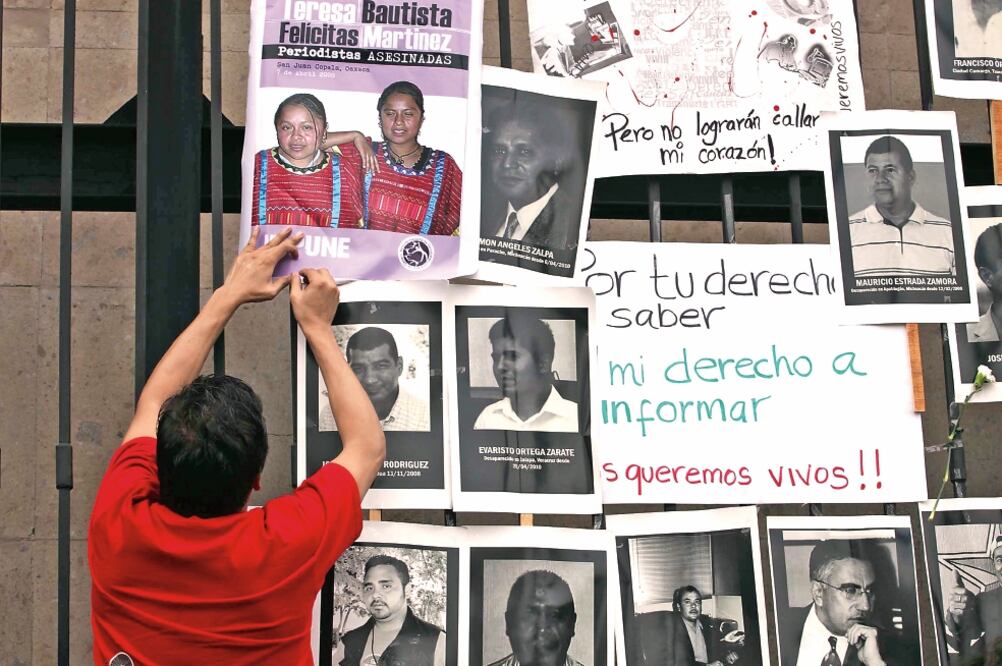 Teresa Bautista
Felícitas Martínez
Periodistas ASESINADAS
San Juan Copala, Oaxaca
7 de abril 2008
UNE
MON ANGELES ZALPA
Pero no lograrán callar
mi corazón!
queremos vivos
FRANCISCO
MAURICIO ESTRADA ZAMORA
Por tu derecho
saber
mi derecho a
informar
s queremos vivos!!
RODRIGUEZ
13/11/2008
EVARISTO ORTEGA ZARATE
Desaparecido en Xalapa, Veracruz desde
JOS